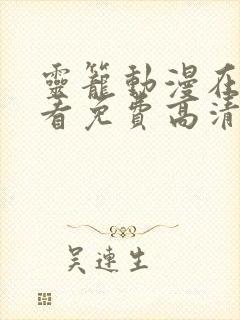 靈籠動漫在
看免費高清
吴連生